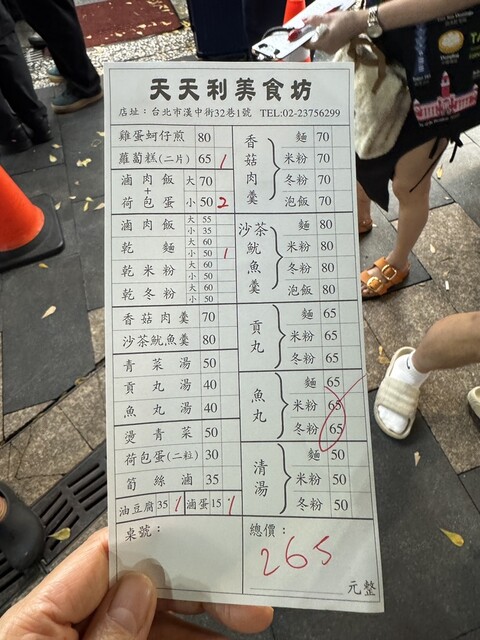 天天利美食坊
店址：台北市漢中街32巷1號 TEL:02-23756299
雞蛋蚵仔煎 80
蘿蔔糕(二片) 65 1
滷肉飯 + 荷包蛋 大 70
小 50 2
滷肉飯 大 55
小 35
乾麵 大 60
小 50 1
乾米粉 大 60
小 50
乾冬粉 大 60
小 50
香菇肉羹 70
沙茶魷魚羹 80
青菜湯 50
貢丸湯 40
魚丸湯 40
燙青菜 50
荷包蛋(二粒) 30
筍絲滷 35
油豆腐 35 1 滷蛋 15 1
桌號：
香菇肉羹 麵 70
米粉 70
冬粉 70
泡飯 70
沙茶魷魚羹 麵 80
米粉 80
冬粉 80
泡飯 80
貢丸 麵 65
米粉 65
冬粉 65
魚丸 麵 65
米粉 65
冬粉 65
清湯 麵 50
米粉 50
冬粉 50
總價：
265
元整